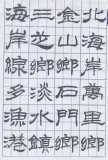 北海岸萬里鄉
金山鄉石門鄉
三芝鄉淡水鎮
海岸線多漁港